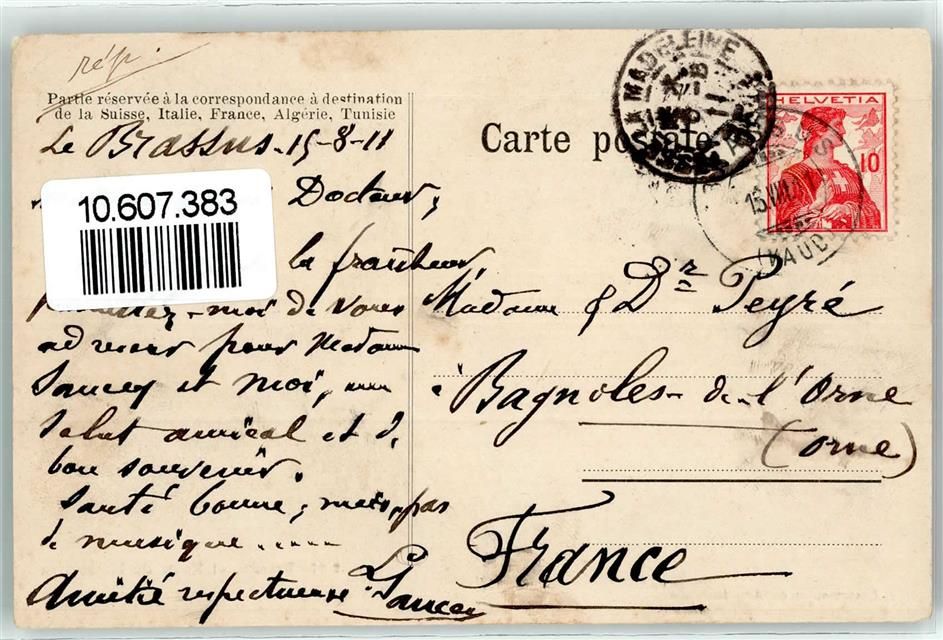 rép.
Partie réservée à la correspondance à destination
de la Suisse, Italie, France, Algérie, Tunisie
Le Brassus. 15-8-11
10.607.383
Docteur,
la fraîcheur
moi de vous
adresser pour Madame
Saucey et moi, un
salut amical et d.
bon souvenir.
Santé bonne, mais pas
de musique .....
Amitié respectueuse
Carte postale
LA MADELEINE
HELVETIA
10
15.VIII.11
(VAUD)
Madame & Dr Peyré
Bagnoles-de-l'Orne
(Orne)
France